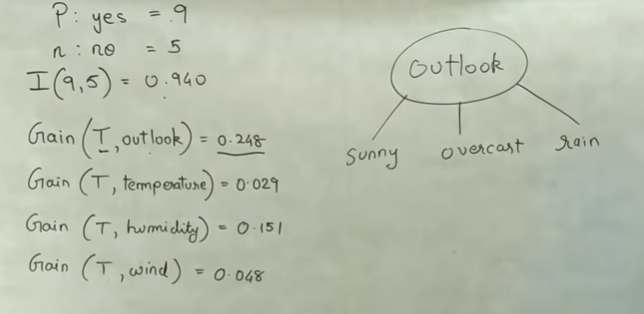 P: yes = 9
n: no = 5
I(9,5) = 0.940
Gain (T, outlook) = 0.248
Gain (T, temperature) = 0.029
Gain (T, humidity) = 0.151
Gain (T, wind) = 0.048
outlook
sunny overcast rain